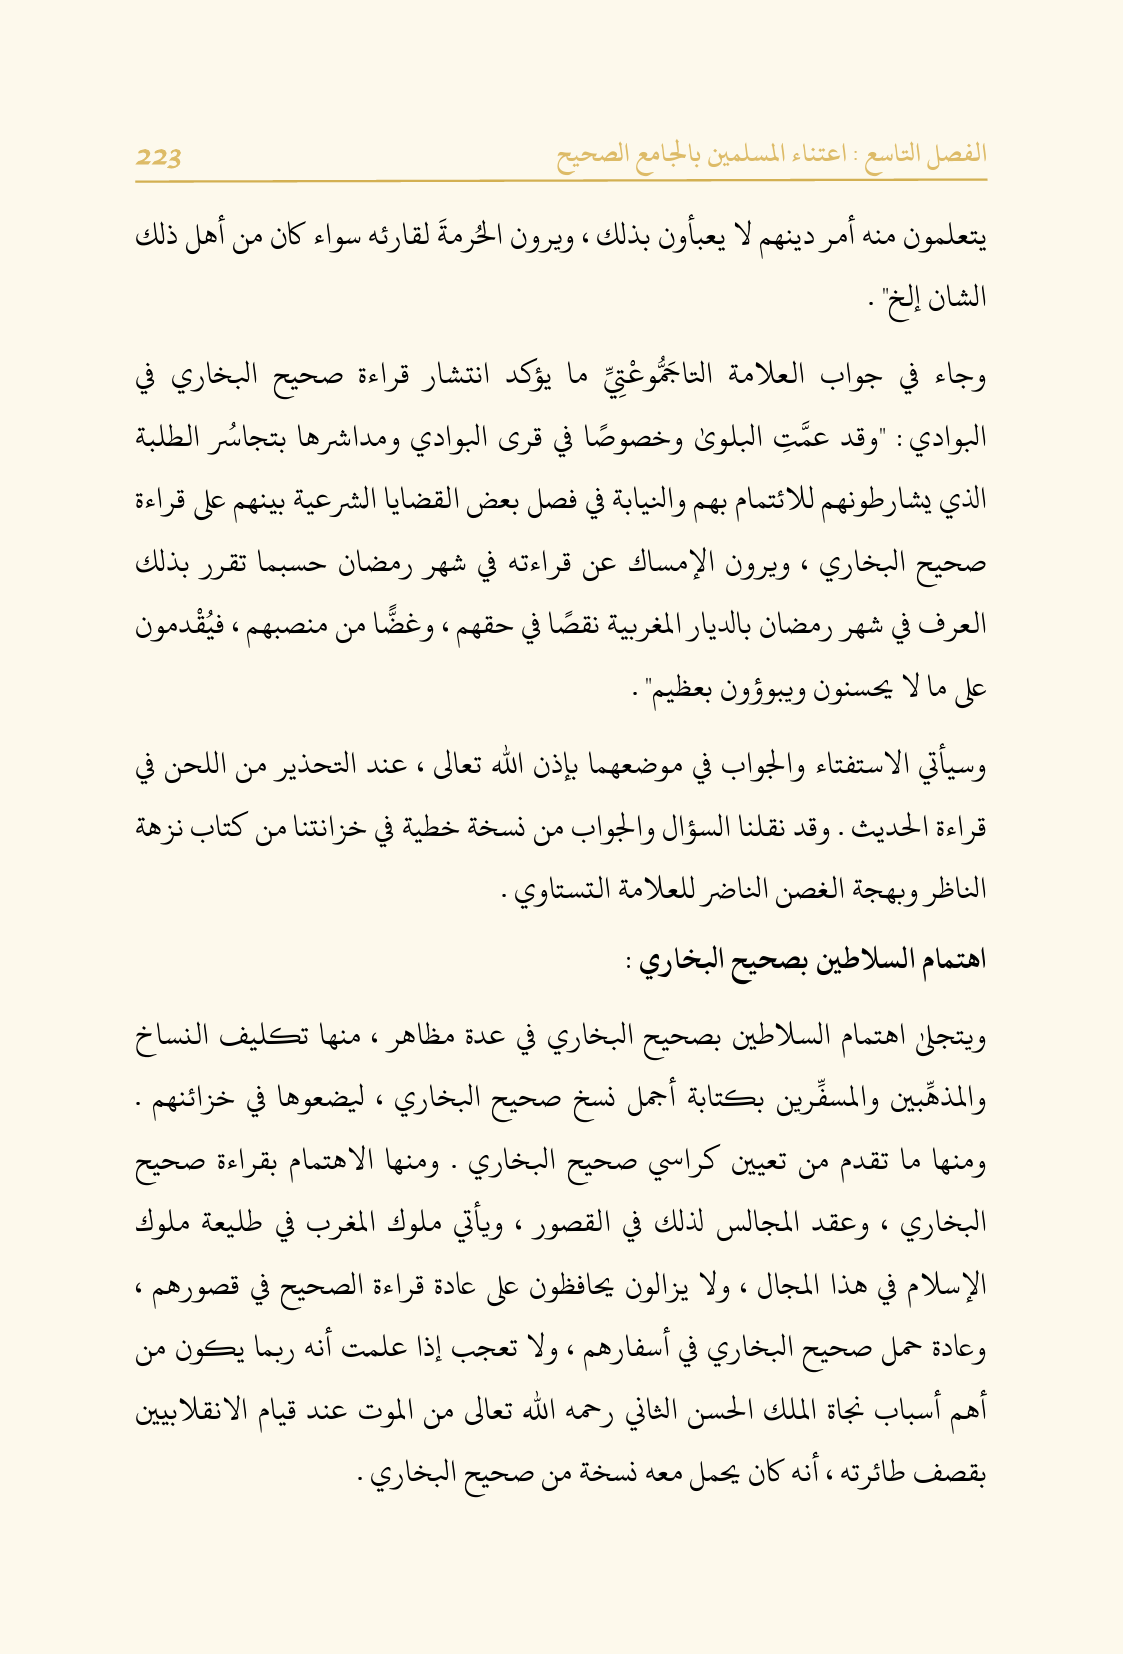 الفصل التاسع : اعتناء المسلمين بالجامع الصحيح 223
يتعلمون منه أمر دينهم لا يعبأون بذلك ، ويرون الحُرمةَ لقارئه سواء كان من أهل ذلك
الشان إلخ" .
وجاء في جواب العلامة التاجَمُّوعْتِيِّ ما يؤكد انتشار قراءة صحيح البخاري في
البوادي : "وقد عمَّتِ البلوىٰ وخصوصًا في قرى البوادي ومداشرها بتجاسُر الطلبة
الذي يشارطونهم للائتمام بهم والنيابة في فصل بعض القضايا الشرعية بينهم على قراءة
صحيح البخاري ، ويرون الإمساك عن قراءته في شهر رمضان حسبما تقرر بذلك
العرف في شهر رمضان بالديار المغربية نقصًا في حقهم ، وغضًّا من منصبهم ، فيُقْدمون
على ما لا يحسنون ويبوؤون بعظيم" .
وسيأتي الاستفتاء والجواب في موضعهما بإذن الله تعالى ، عند التحذير من اللحن في
قراءة الحديث . وقد نقلنا السؤال والجواب من نسخة خطية في خزانتنا من كتاب نزهة
الناظر وبهجة الغصن الناضر للعلامة التستاوي .
اهتمام السلاطين بصحيح البخاري :
ويتجلىٰ اهتمام السلاطين بصحيح البخاري في عدة مظاهر ، منها تكليف النساخ
والمذهِّبين والمسفِّرين بكتابة أجمل نسخ صحيح البخاري ، ليضعوها في خزائنهم .
ومنها ما تقدم من تعيين كراسي صحيح البخاري . ومنها الاهتمام بقراءة صحيح
البخاري ، وعقد المجالس لذلك في القصور ، ويأتي ملوك المغرب في طليعة ملوك
الإسلام في هذا المجال ، ولا يزالون يحافظون على عادة قراءة الصحيح في قصورهم ،
وعادة حمل صحيح البخاري في أسفارهم ، ولا تعجب إذا علمت أنه ربما يكون من
أهم أسباب نجاة الملك الحسن الثاني رحمه الله تعالى من الموت عند قيام الانقلابيين
بقصف طائرته ، أنه كان يحمل معه نسخة من صحيح البخاري .